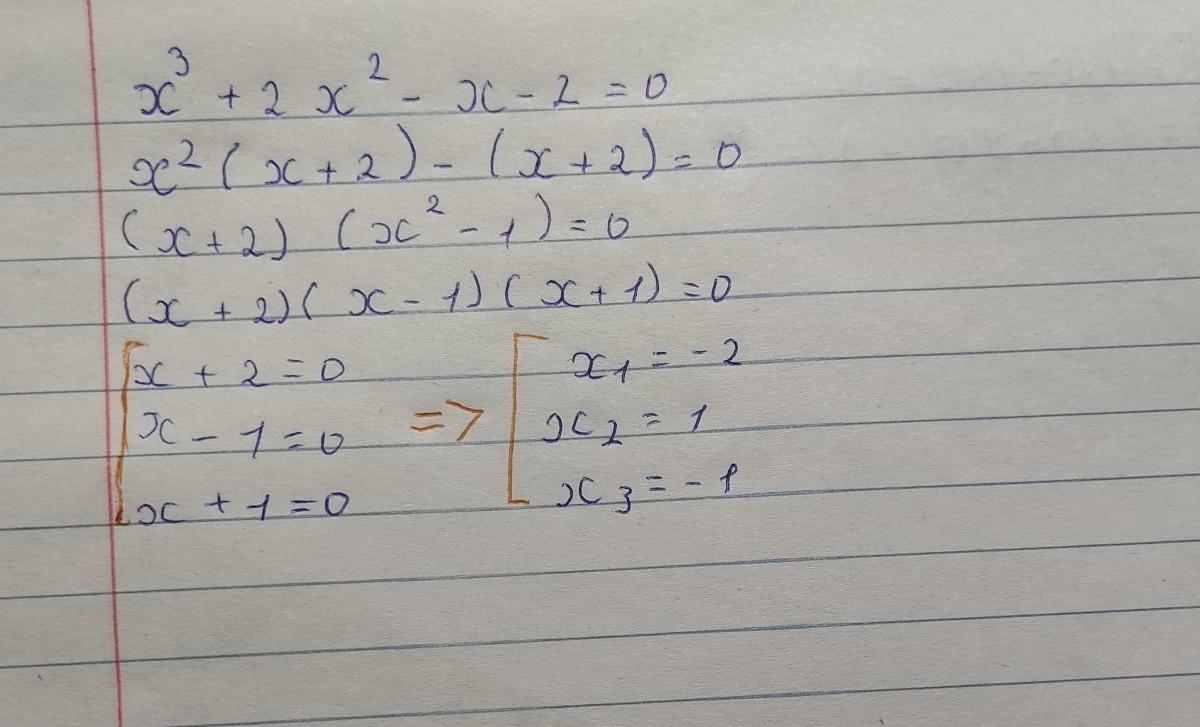 x³ + 2x² - x - 2 = 0
x² (x + 2) - (x + 2) = 0
(x + 2) (x² - 1) = 0
(x + 2)(x - 1)(x + 1) = 0
[x + 2 = 0 [x₁ = -2
x - 1 = 0 => x₂ = 1
x + 1 = 0 x₃ = -1